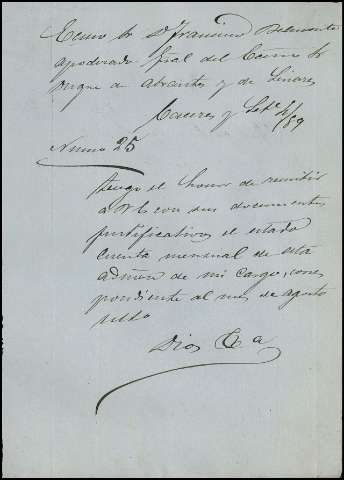 Ecsmo Sr Dn Francisco Belmonte
apoderado gral del Ecsmo Sr
Duque de Abrantes y de Linares
Caceres y Sete 4/89
Numo 25
Tengo el honor de remitir
a VE con sus documentos
justificativos el estado
cuenta mensual de esta
admon de mi cargo, corres
pondiente al mes de agosto
Dios